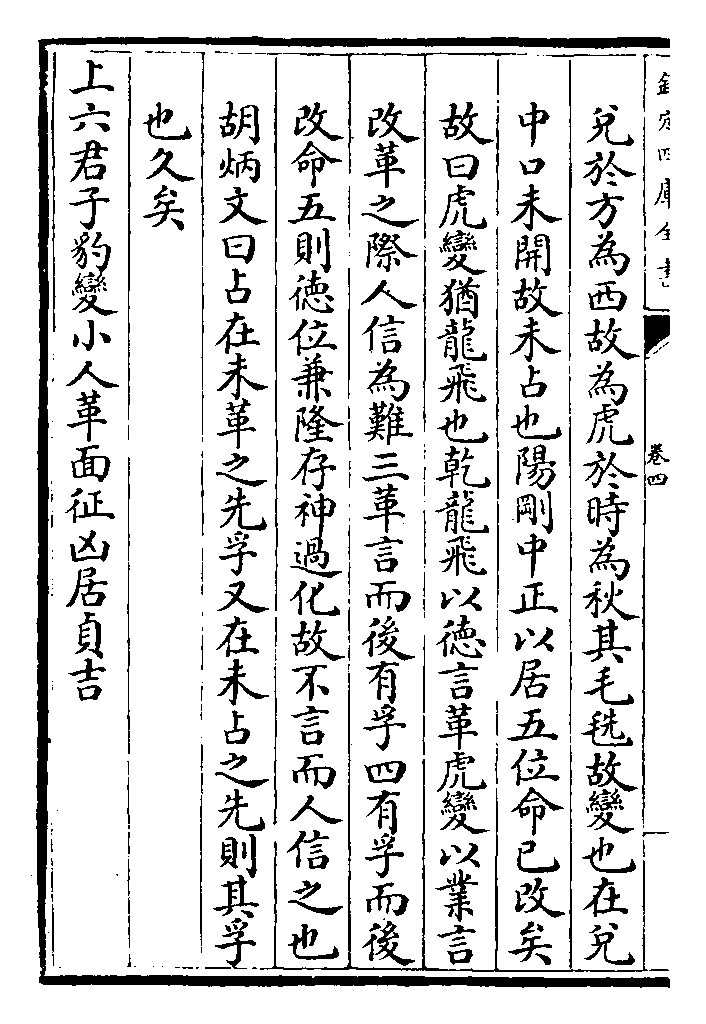 欽定四庫全書
卷四
兌於方為西故為虎於時為秋其毛毨故變也在兌
中口未開故未占也陽剛中正以居五位命已改矣
故曰虎變猶龍飛也乾龍飛以徳言革虎變以業言
改革之際人信為難三革言而後有孚四有孚而後
改命五則徳位兼隆存神過化故不言而人信之也
胡炳文曰占在未革之先孚又在未占之先則其孚
也久矣
上六君子豹變小人革面征凶居貞吉